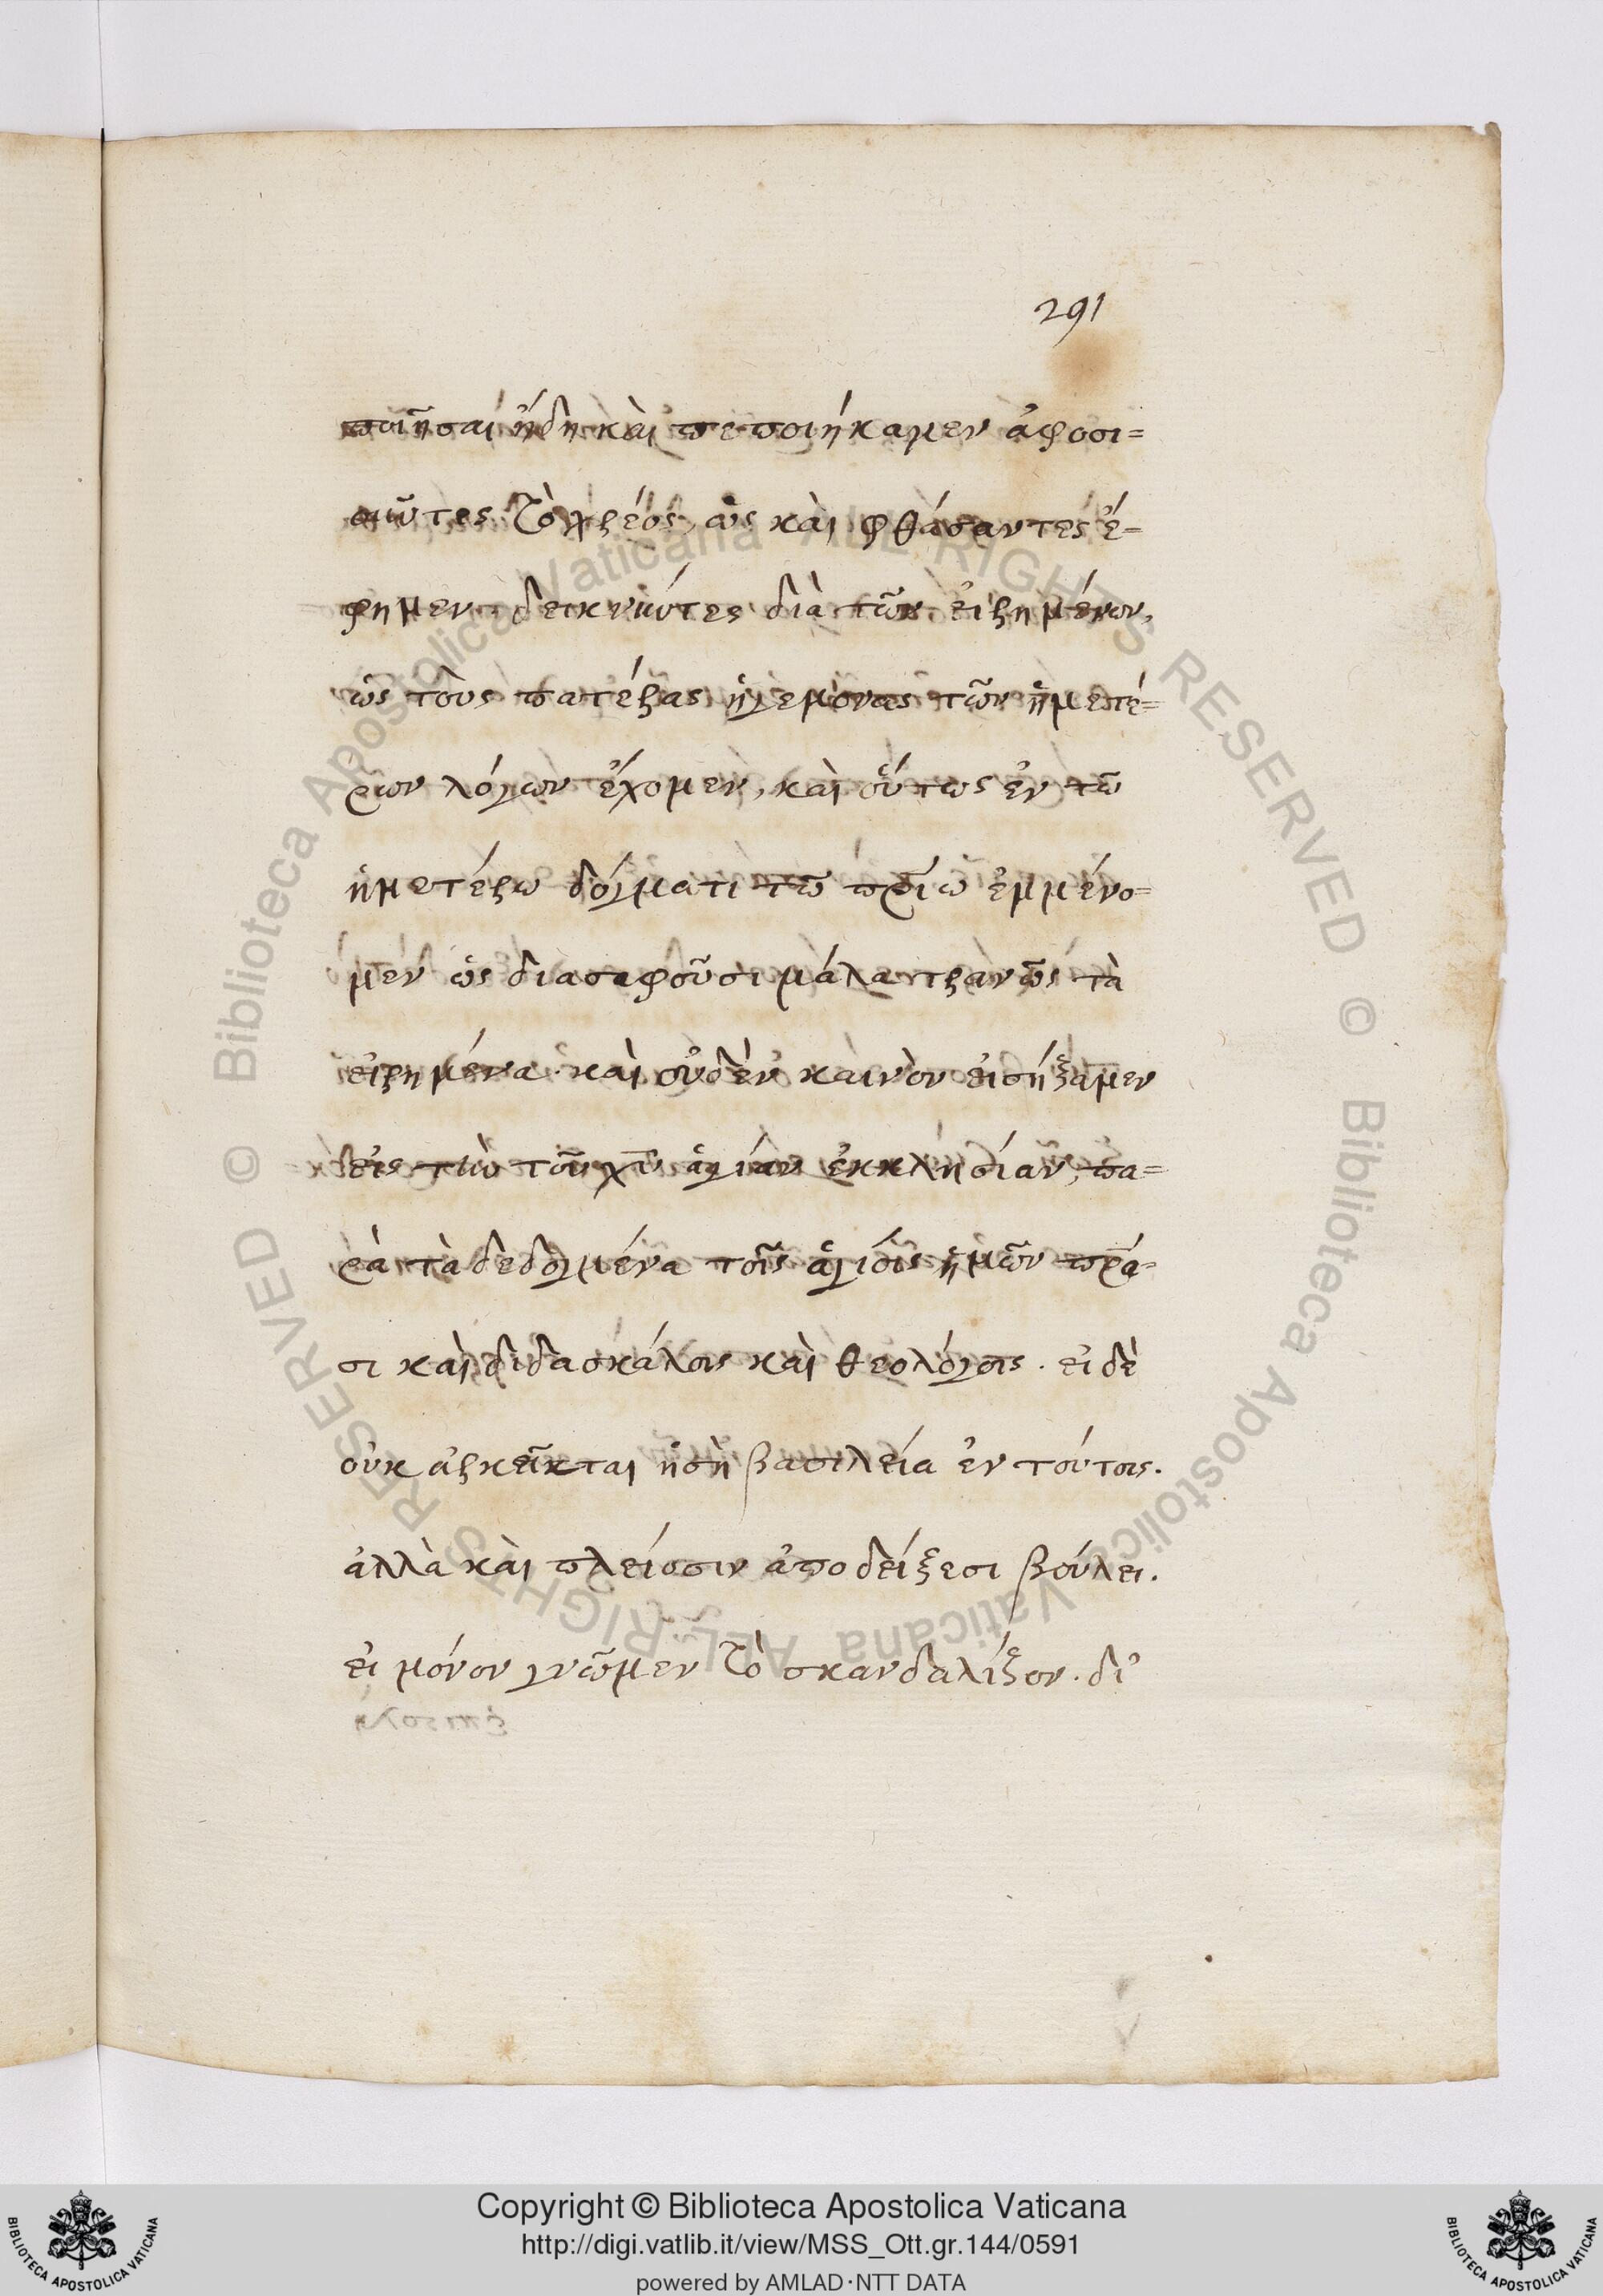 291
ποιῆσαι ἤδη καὶ πεποιήκαμεν ἀφοσι=
οῦντες τὸ χρέος, ὡς καὶ φθάσαντες ἔ=
φημεν, δεικνύντες διὰ τῶν εἰρημένων,
ὡς τοὺς πατέρας ἡγεμόνας τῶν ἡμετέ=
ρων λόγων ἔχομεν, καὶ οὕτως ἐν τῶ
ἡμετέρω δόγματι τῶ πρίω ἐμμένο=
μεν ὡς διασαφοῦσι μάλα τρανῶς τὰ
εἰρημένα. καὶ οὐδὲν καινὸν εἰσήξαμεν
εἰς τὴν τοῦ χῦ ἁγίαν ἐκκλησίαν, πα=
ρὰ τὰ δεδογμένα τοῖς ἁγίοις ἡμῶν πρά=
σι καὶ διδασκάλοις καὶ θεολόγοις. εἰ δὲ
οὐκ ἀρκεῖται ἡ σὴ βασιλεία ἐν τούτοις.
ἀλλὰ καὶ πλείοσιν ἀποδείξεσι βούλει.
εἰ μόνον γνῶμεν τὸ σκανδαλίζον. δι'
© Biblioteca Apostolica Vaticana ALL RIGHTS RESERVED © Biblioteca Apostolica Vaticana ALL RIGHTS RESERVED
Copyright © Biblioteca Apostolica Vaticana
http://digi.vatlib.it/view/MSS_Ott.gr.144/0591
powered by AMLAD·NTT DATA
BIBLIOTECA APOSTOLICA VATICANA
BIBLIOTECA APOSTOLICA VATICANA